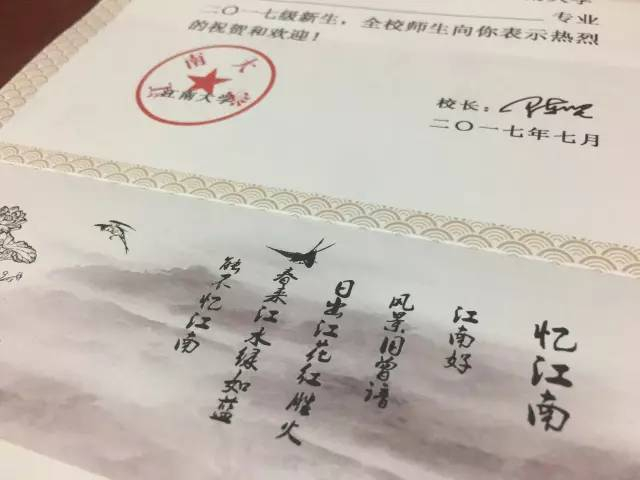 大学
专业
二〇一七级新生，全校师生向你表示热烈
的祝贺和欢迎！
江南大学
校长：
二〇一七年七月
忆江南
江南好
风景旧曾谙
日出江花红胜火
春来江水绿如蓝
能不忆江南